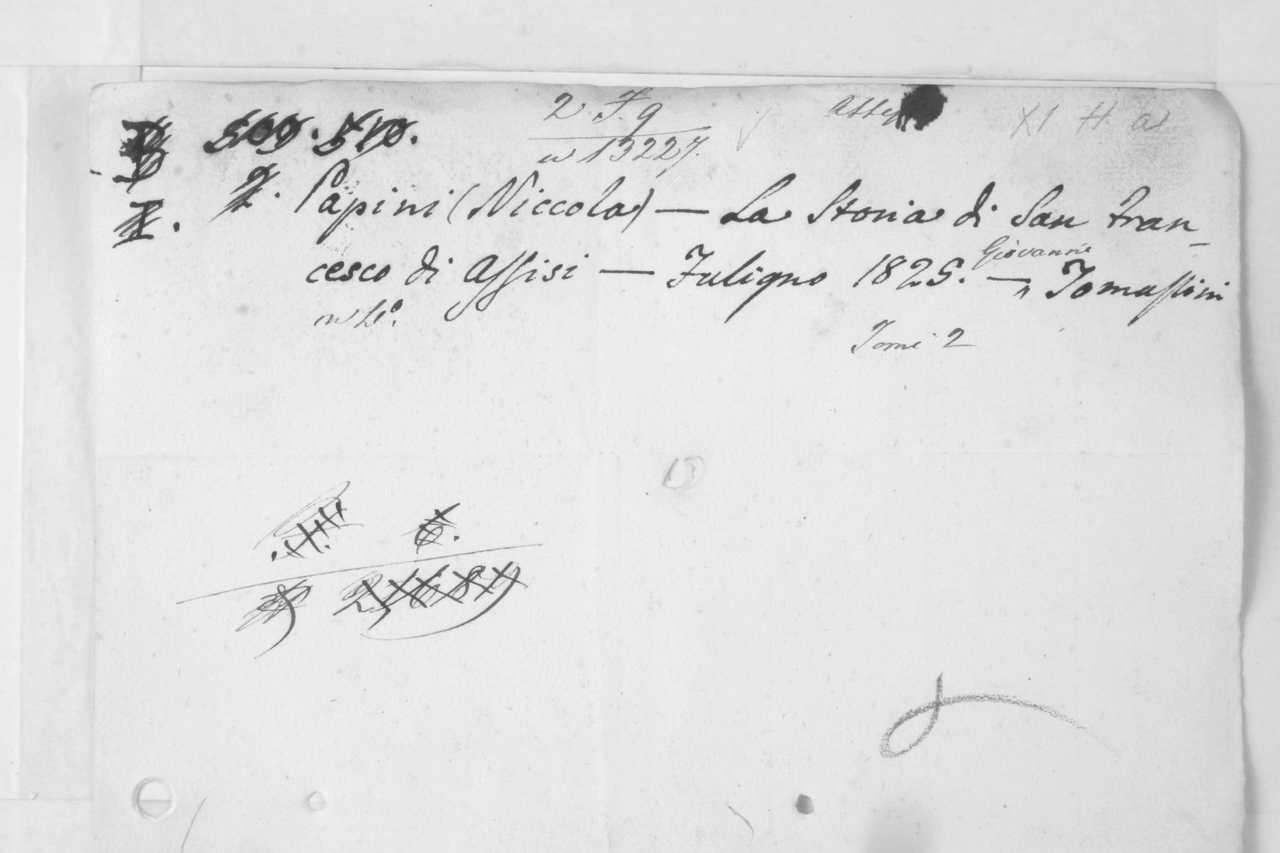 509. 510.
2 F. g
XI H a
n 13227.
2. Papini (Niccola) — La Storia di San Fran-
cesco di Assisi — Fuligno 1825. — Giovanni Tomassini
in 4°.
Tomi 2